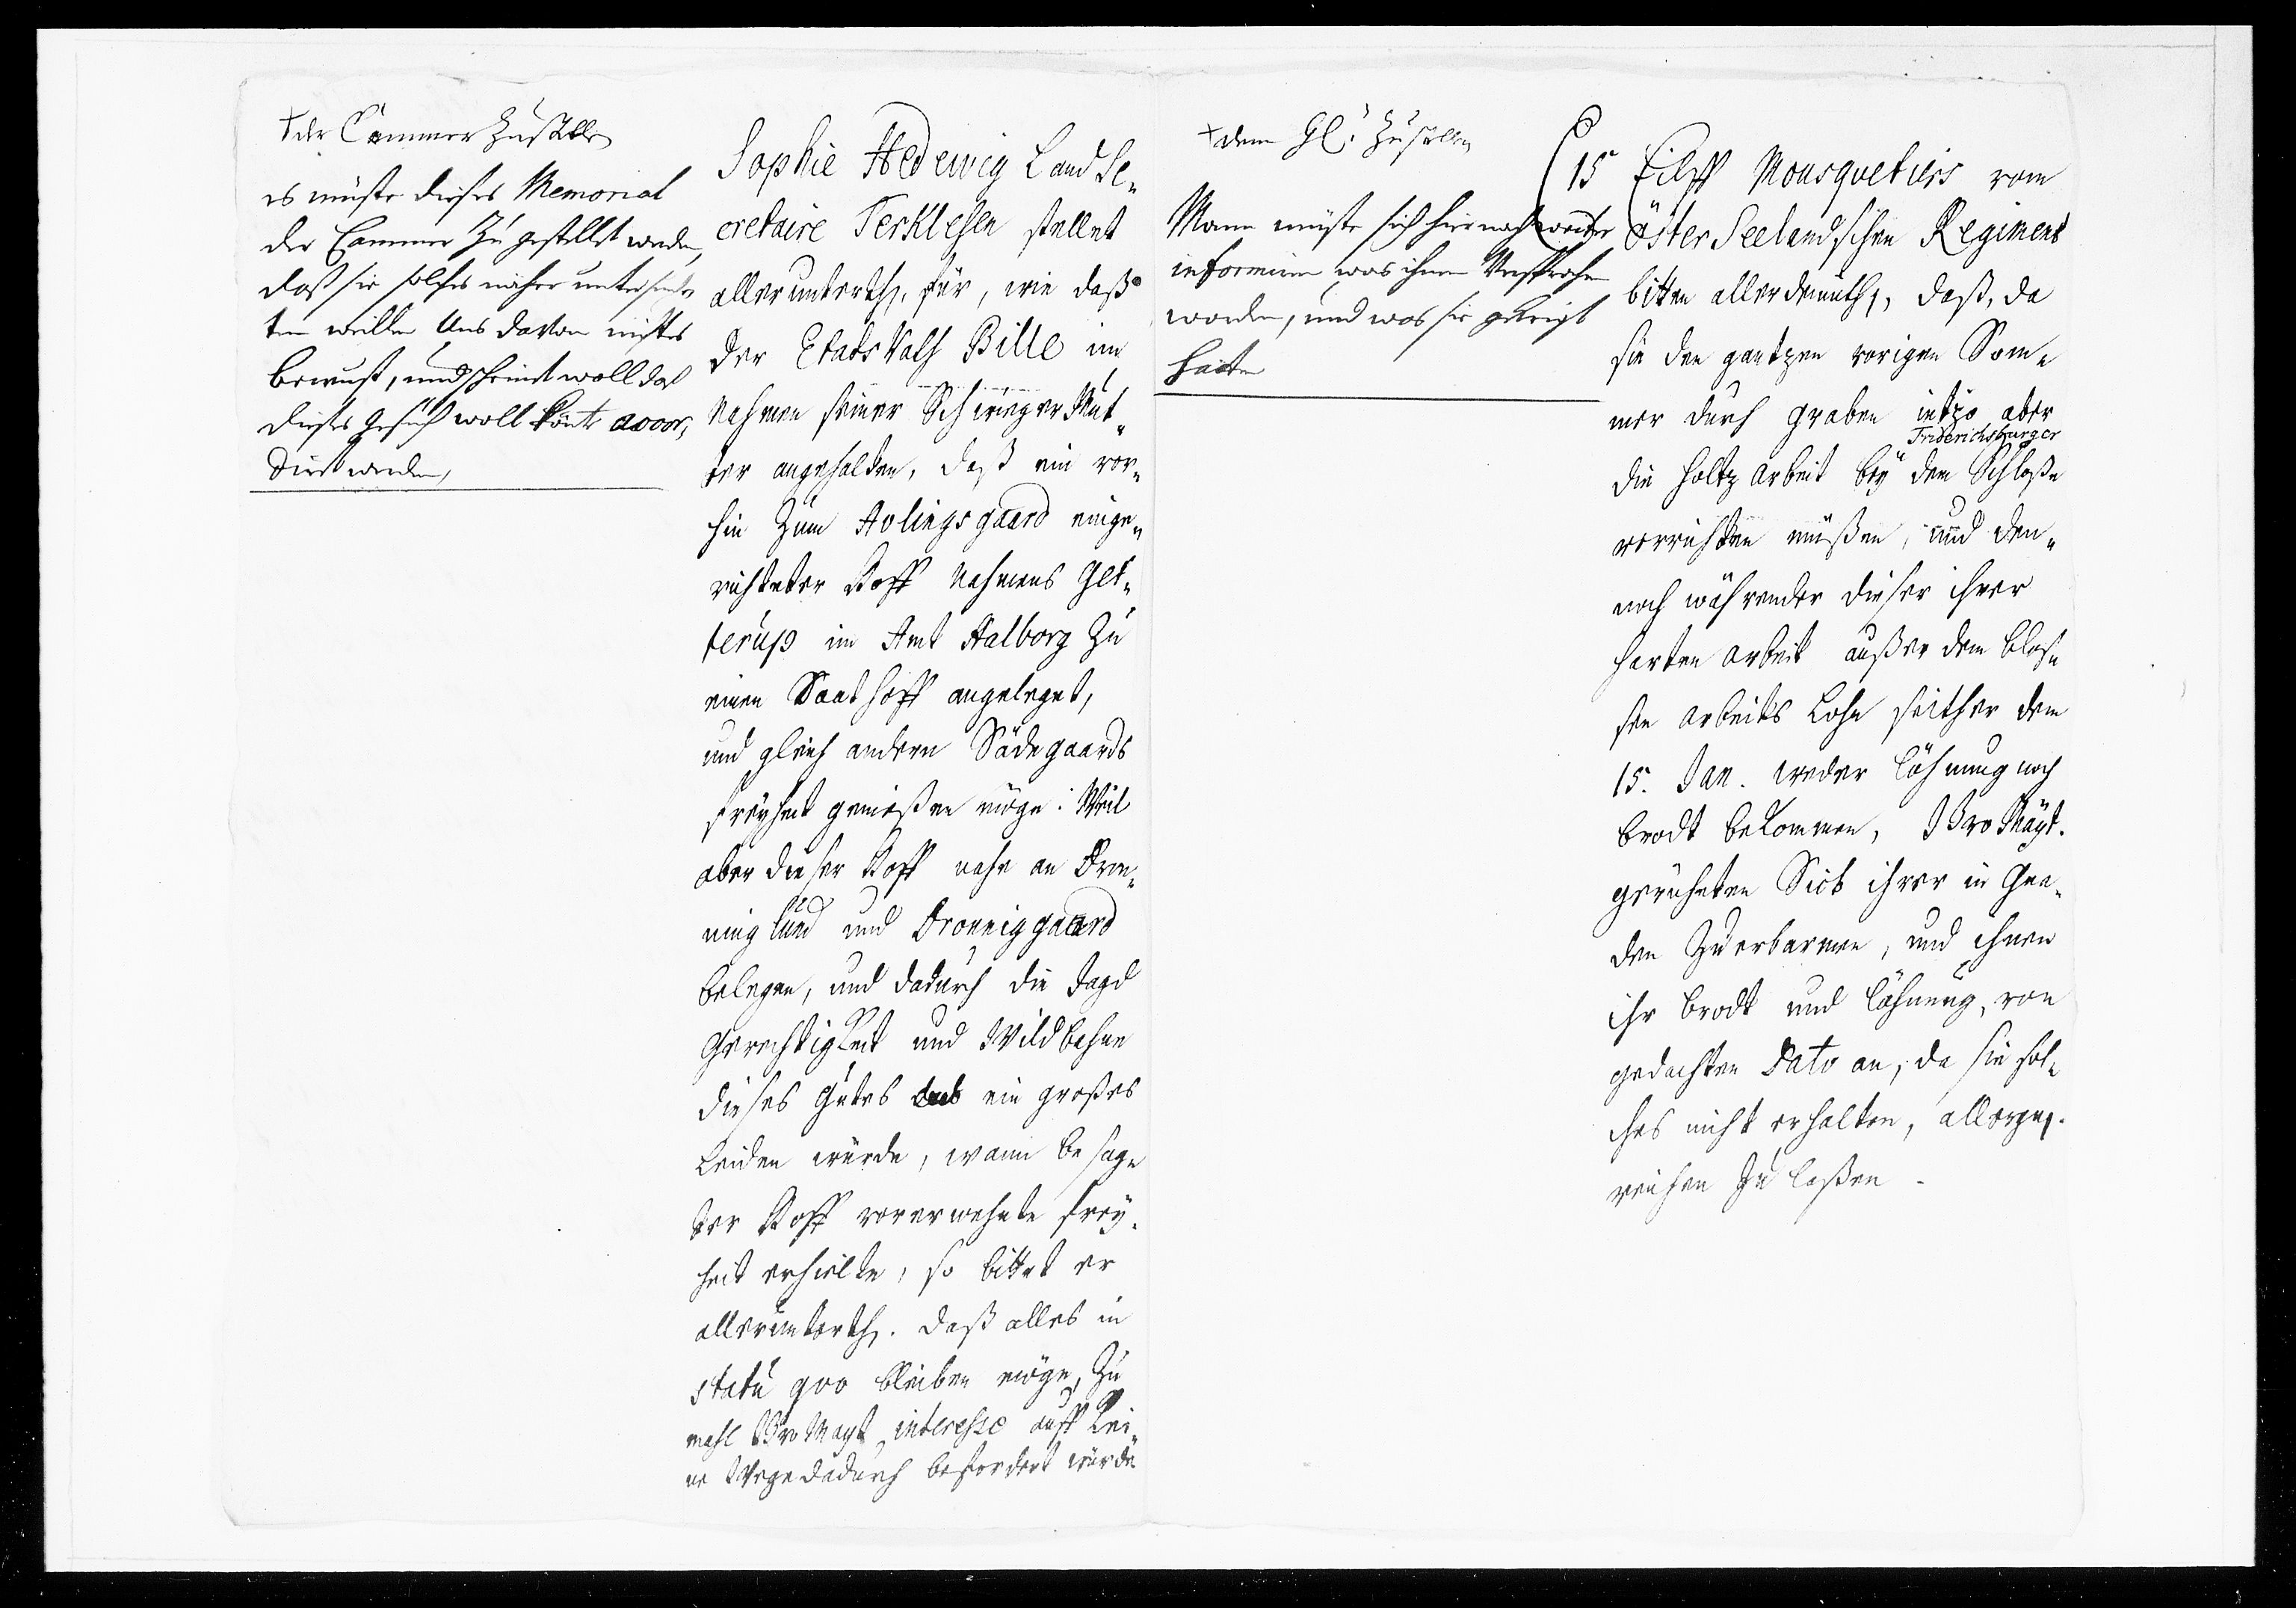 + der Cammer Zustellen
es müste dieses Memorial
der Cammer Zu gestellet werden,
daß sie solches näher untersuch
ten weillen Uns davon nichtes
bewust, und scheinet woll daß
dieses gesuch woll könte accor,
dirt werden,
Sophie Hedewig Land Se„
cretaire Terklesen stellet
allerunterth. für, wie daß
der Etads Rath Bille im
Nahmen seiner Schwieger Mut„
ter angehalten, daß ein vor„
hin Zum Avlingsgaard einge„
richteter Hoff Nahmens Get„
terup im Amt Aalborg Zu
einen Saathoff angeleget,
und gleich andern Sädegaards
freyheit genießen möge: Weil
aber dieser Hoff nahe an Dron„
ning lund und Dronniggaard
belegen, und dadurch die Jagd
Gerechtigkeit und Wildbahne
dieses Gutes ein großes
Leiden würde, wann besag„
ter Hoff vorerwehnte frey„
heit erhielte, so bittet er
allerunterth. daß alles in
statu quo bleiben möge, Zu
mahl Ihro Mayt interesse auff kei„
ne Wege dadurch befordert würde
+ dem Gl: Zustellen
Mann müste sich hier nach weiter
informiren was ihnen Versprochen
worden, und was sie gekrigt
hätten
15 Eilff Mousquetiers vom
öster Seelandschen Regiment
bitten allerdemüth., daß, da
sie den gantzen vorigen Som„
mer durch graben intzo aber
die holtz arbeit bey dem Friderichsburger Schloße
verrichten müßen, und den„
noch währender dieser ihrer
harten arbeit außer dem bloß„
sen arbeits Lohn seither dem
15. Jan. weder löhnung noch
brodt bekommen, Ihro Mayt.
geruheten Sich ihrer in Gna„
den Zu erbarmen, und ihnen
ihr brodt und löhnung, von
gedachten Dato an, da sie sol„
ches nicht erhalten, allergn.
reichen Zu laßen -